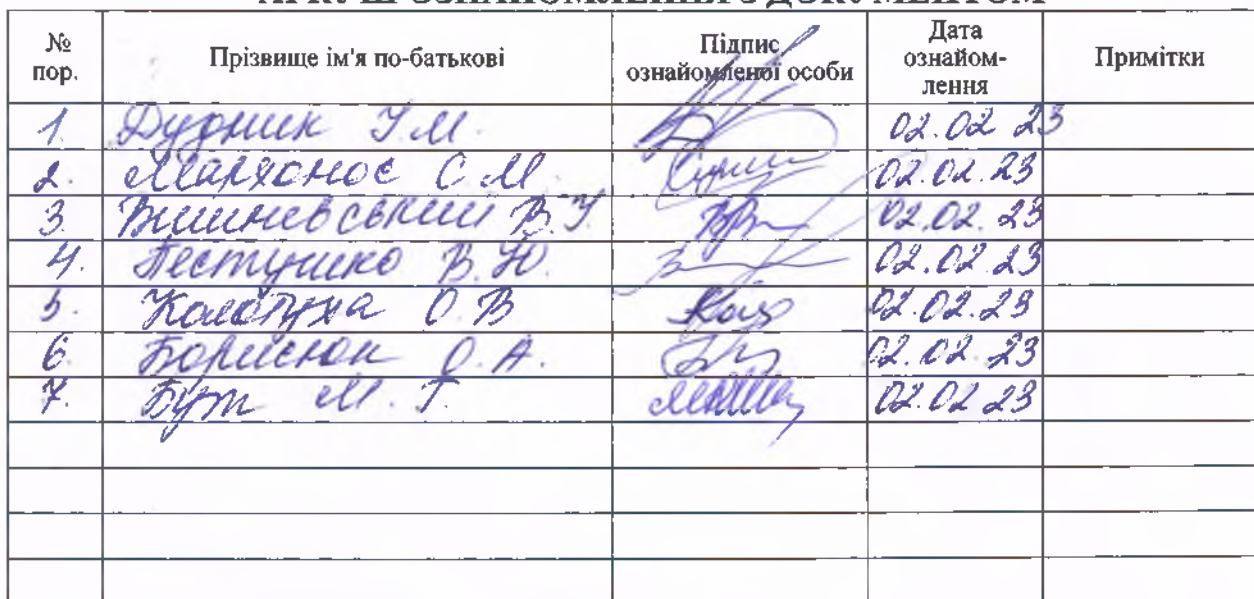 АРКУШ ОЗНАЙОМЛЕННЯ З ДОКУМЕНТОМ
№ пор. Прізвище ім'я по-батькові Підпис ознайомленої особи Дата ознайом-лення Примітки
1. Дудник У.М. 02.02 23
2. Мархонос С.М 02.02.23
3. Вишневський В.У. 02.02.23
4. Пестушко В.Ю. 02.02.23
5. Колотуха О.В 02.02.23
6. Борисюк О.А. 02.02.23
7. Бут М.Г. 02.02 23